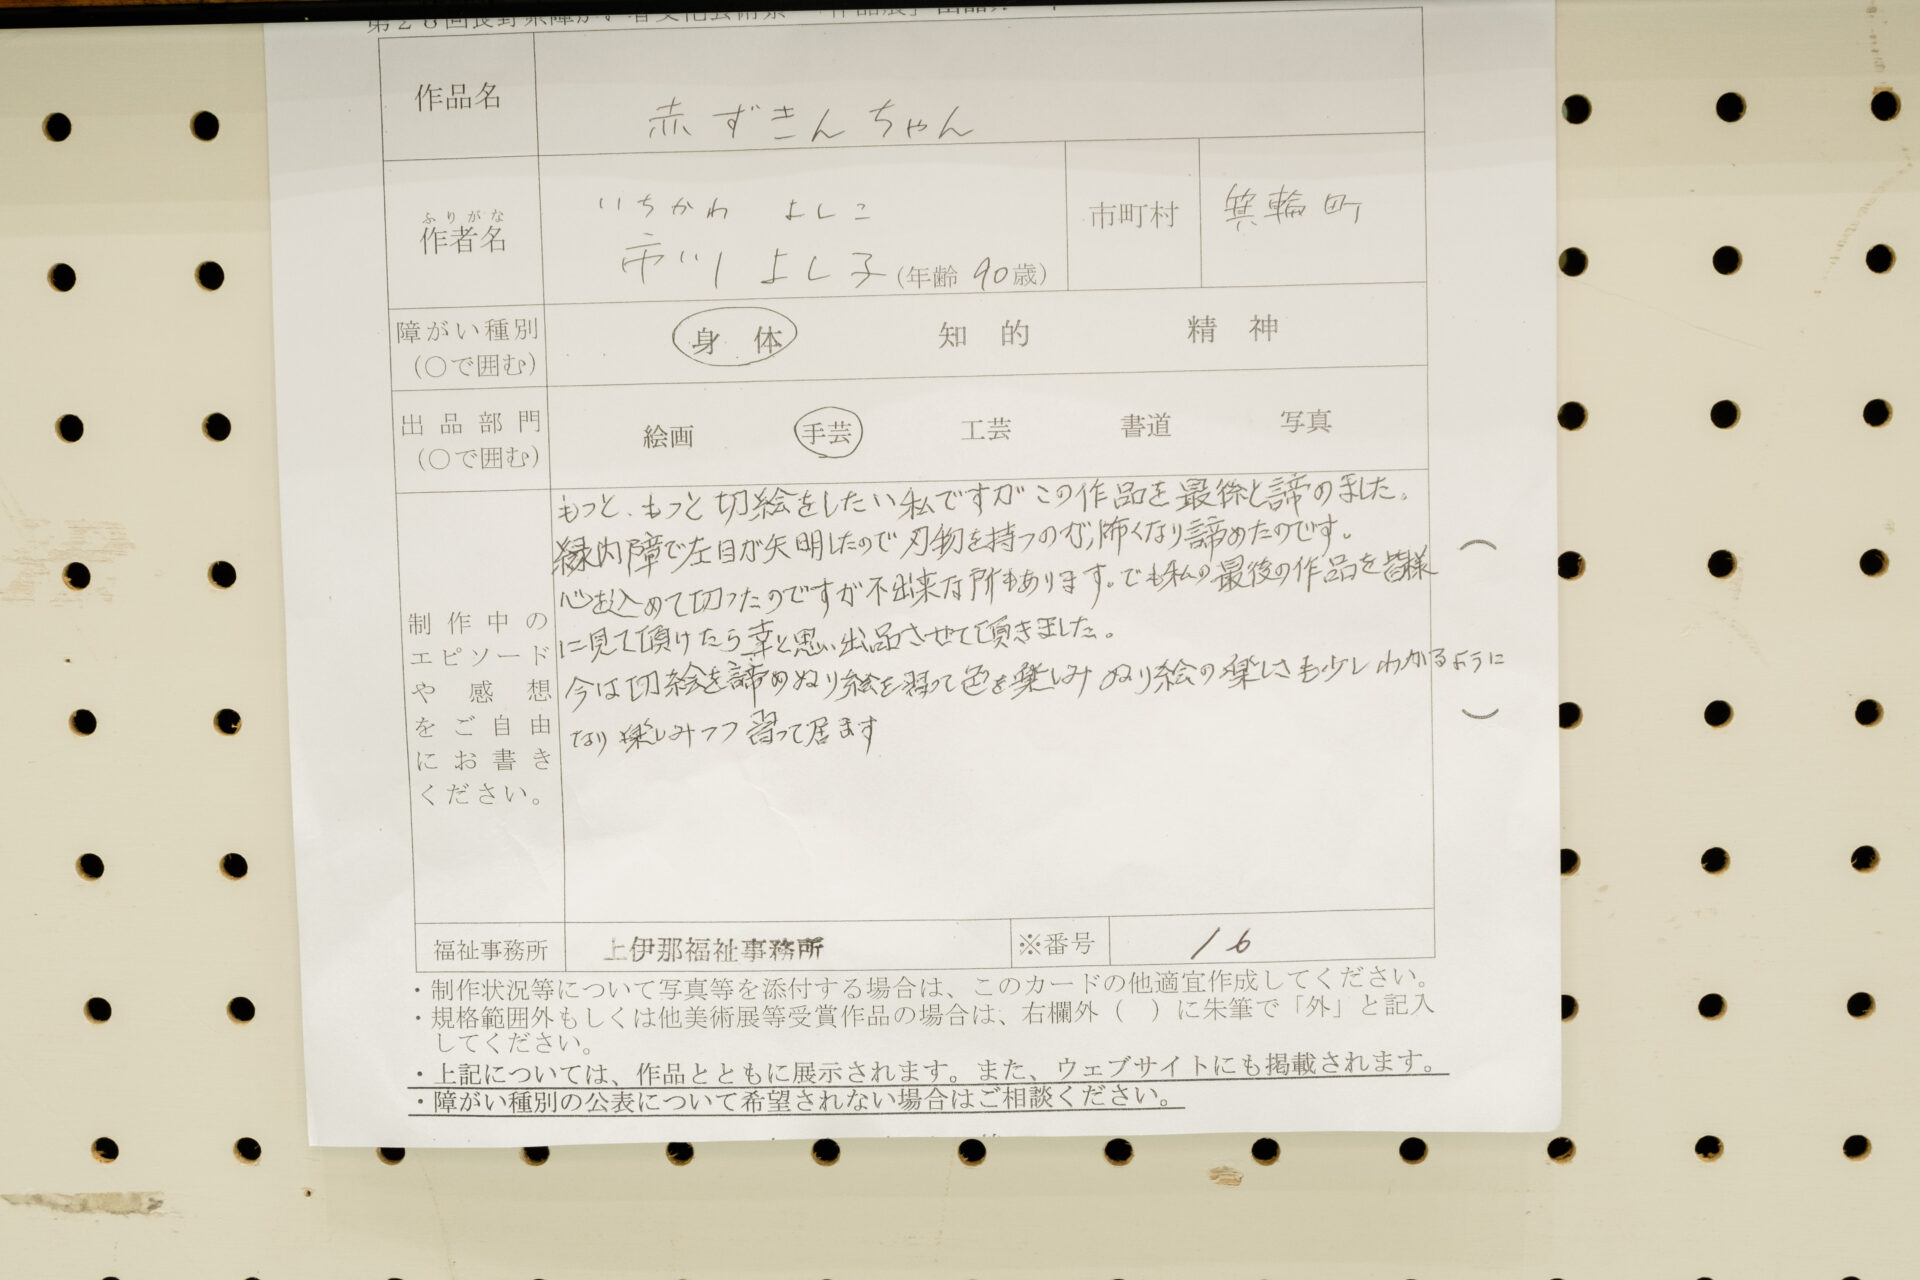 第26回長野県障がい者文化芸術祭 「作品展」出品カード
作品名
赤ずきんちゃん
ふりがな
作者名
いちかわ よしこ
市川 よし子 (年齢 90歳)
市町村
箕輪町
障がい種別
(○で囲む)
身 体 知 的 精 神
出品部門
(○で囲む)
絵画 手芸 工芸 書道 写真
制作中の
エピソード
や感想
をご自由
にお書き
ください。
もっと、もっと切絵をしたい私ですがこの作品を最後と諦めました。
縁内障で左目が失明したので刃物を持つのが怖くなり諦めたのです。
心を込めて切ったのですが不出来な所もあります。でも私の最後の作品を皆様
に見て頂けたら幸と思い出品させて頂きました。
今は切絵を諦めぬり絵を習って色を楽しみ ぬり絵の楽しさも少しわかるように
なり楽しみつつ習って居ます
( )
福祉事務所
上伊那福祉事務所
※番号
16
・制作状況等について写真等を添付する場合は、このカードの他適宜作成してください。
・規格範囲外もしくは他美術展等受賞作品の場合は、右欄外( )に朱筆で「外」と記入
してください。
・上記については、作品とともに展示されます。また、ウェブサイトにも掲載されます。
・障がい種別の公表について希望されない場合はご相談ください。